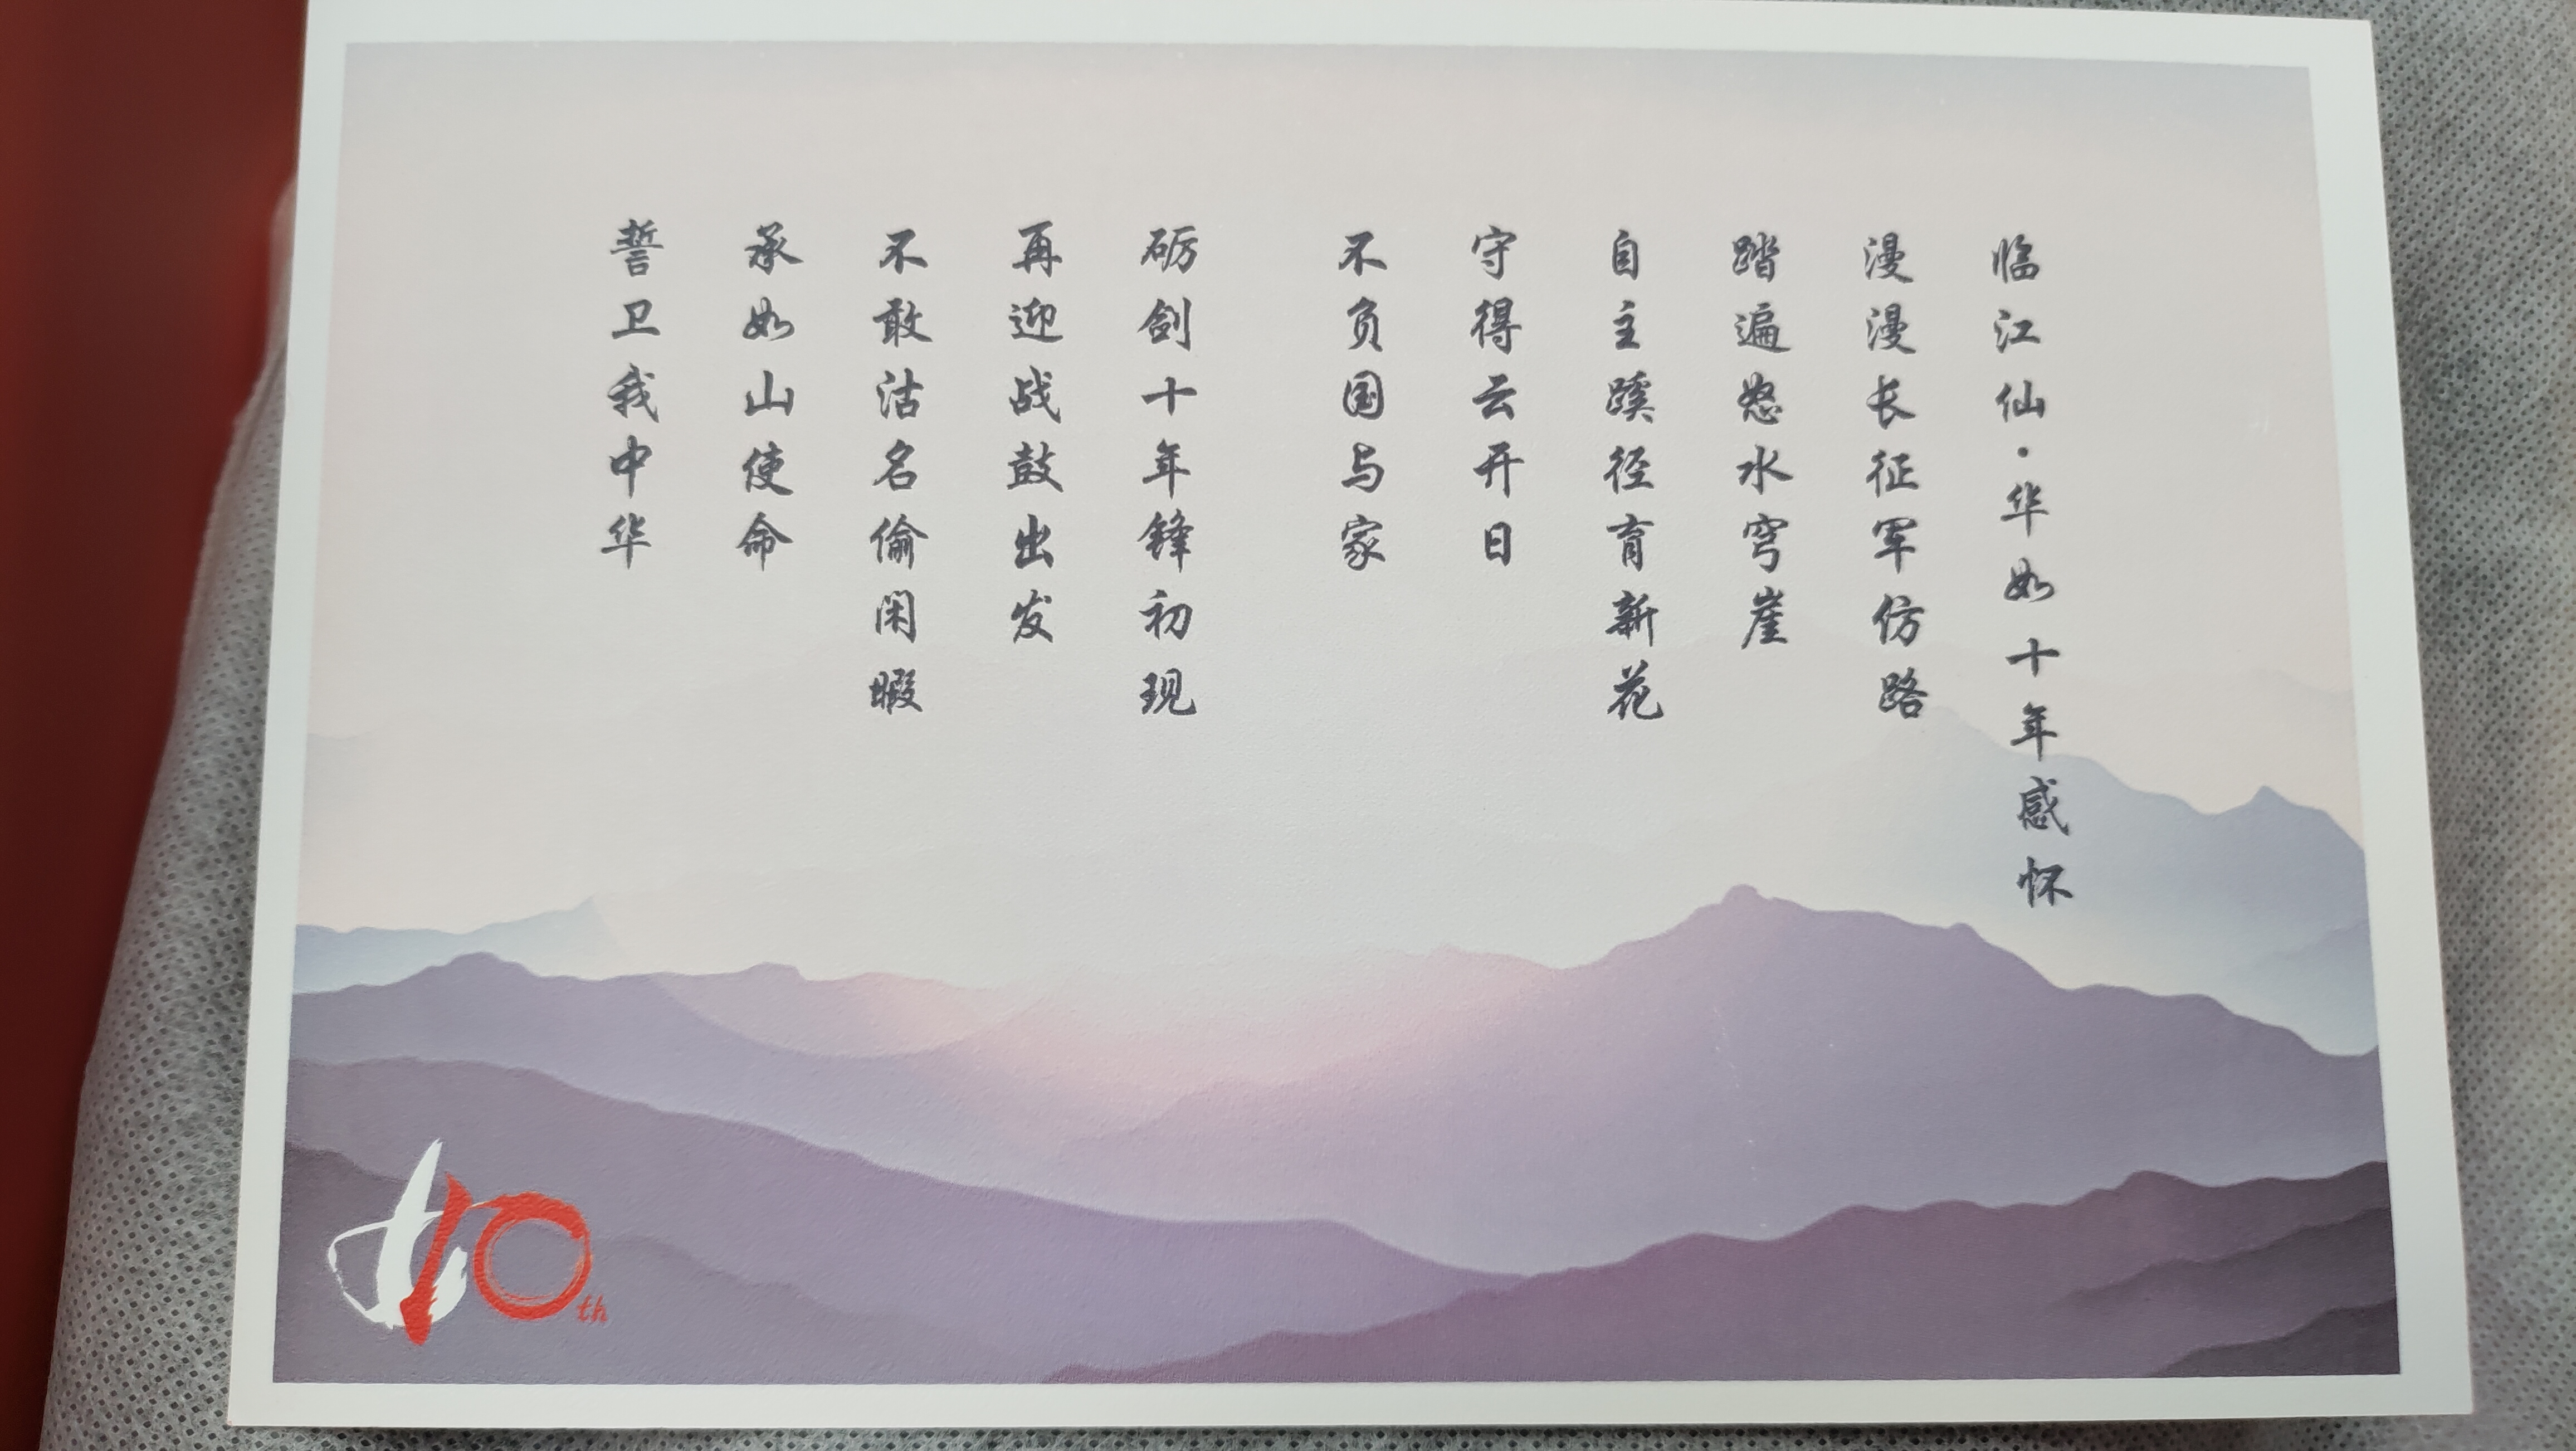 临江仙·华如十年感怀
漫漫长征军仿路
踏遍怒水穹崖
自主蹊径育新花
守得云开日
不负国与家
砺剑十年锋初现
再迎战鼓出发
不敢沽名偷闲暇
承如山使命
誓卫我中华
如10th